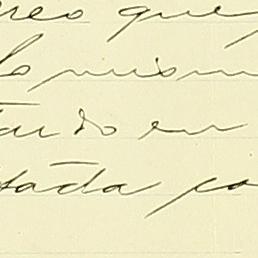 creo que
lo mism
tardo en
tada co